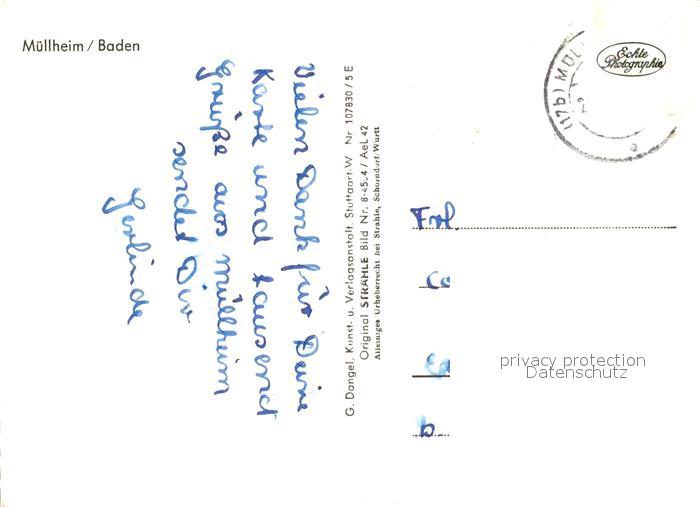 Müllheim / Baden
Vielen Dank für Deine
Karte und tausend
Grüße aus Müllheim
sendet Dir
Gerlinde
G. Dangel, Kunst- u. Verlagsanstalt, Stuttgart-W Nr. 107830 / 5 E
Original STRÄHLE Bild Nr. 8-4504 / AeL 42
Alleiniges Urheberrecht bei Strähle, Schorndorf/Württ
(17b) MÜL
Echte
Photographie
Frl.
privacy protection
Datenschutz
b